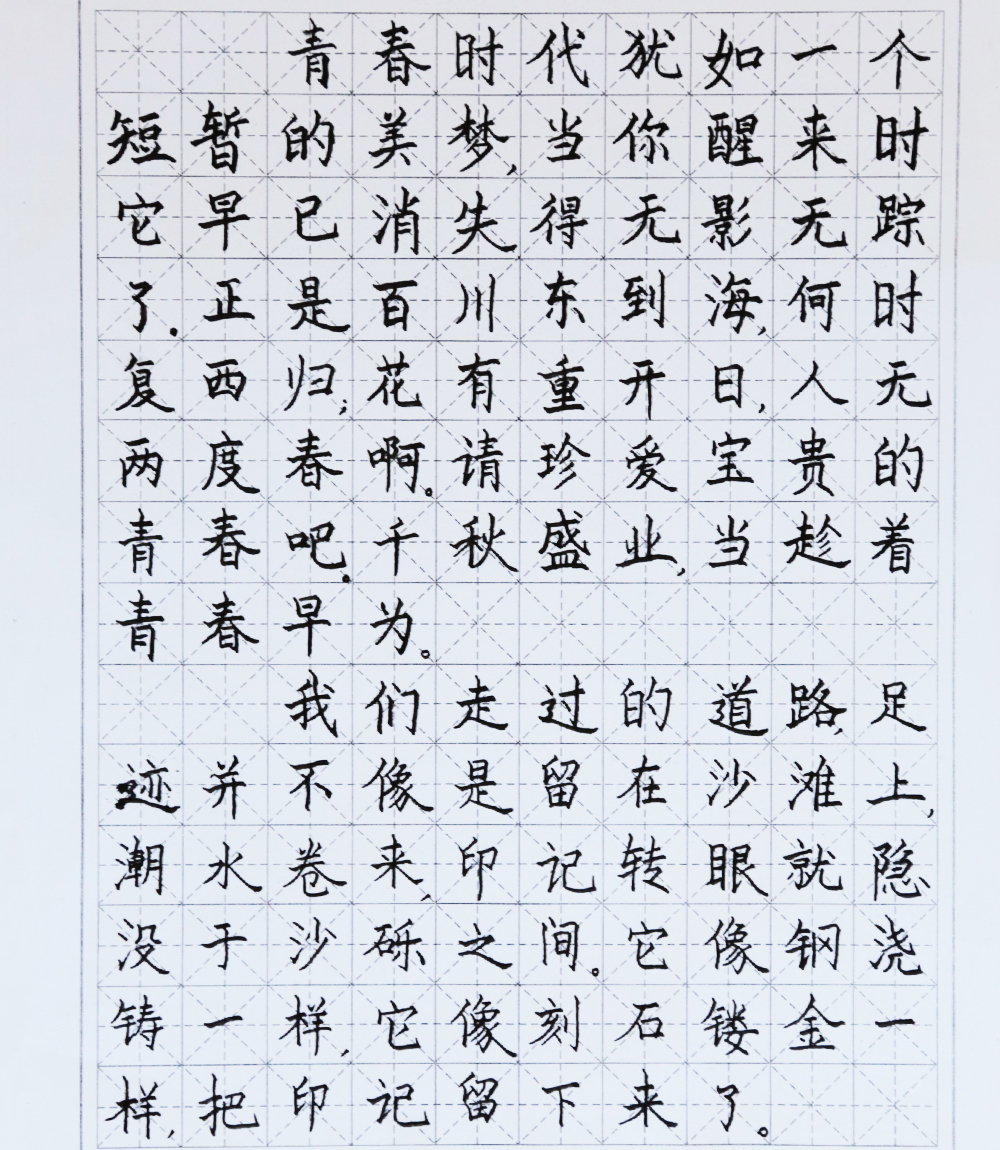 青春时代犹如一个
短暂的美梦,当你醒来时
它早已消失得无影无踪
了.正是百川东到海,何时
复西归;花有重开日,人无
两度春啊。请珍爱宝贵的
青春吧.千秋盛业,当趁着
青春早为。
我们走过的道路,足
迹并不像是留在沙滩上,
潮水卷来,印记转眼就隐
没于沙砾之间。它像钢浇
铸一样,它像刻石镂金一
样,把印记留下来了。